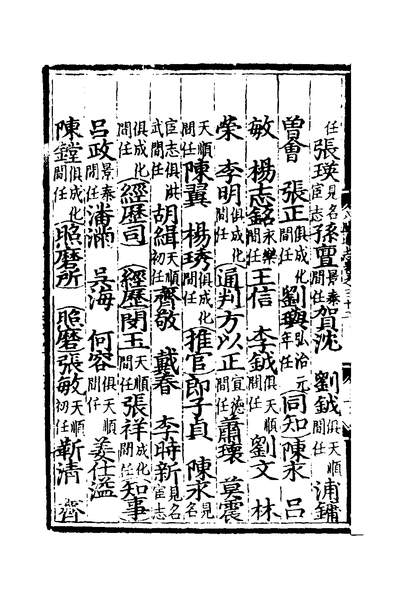 任張瑛見名宦志孫亶景泰間任賀沈 劉鉞俱天順間任浦鏞
曾會 張正俱成化間任劉興弘治元年任同知陳永 呂
敏 楊志銘永樂間任王信 李鉞俱天順間任劉文 林
榮 李明俱成化間任通判方以正宣德間任蕭瓌 莫震
天順間任陳翼 楊琇俱成化間任推官郎子貞 陳永見名
宦志俱洪武間任胡緝天順初任齊敬 戴春 李時新見名宦志
俱成化間任經歷司 經歷閔玉天順間任張祥成化間任知事
呂政景泰間任潘滿 吳海 何容俱天順間任姜仕溢
陳鏜俱成化間任照磨所 照磨張敏天順初任靳清 齊